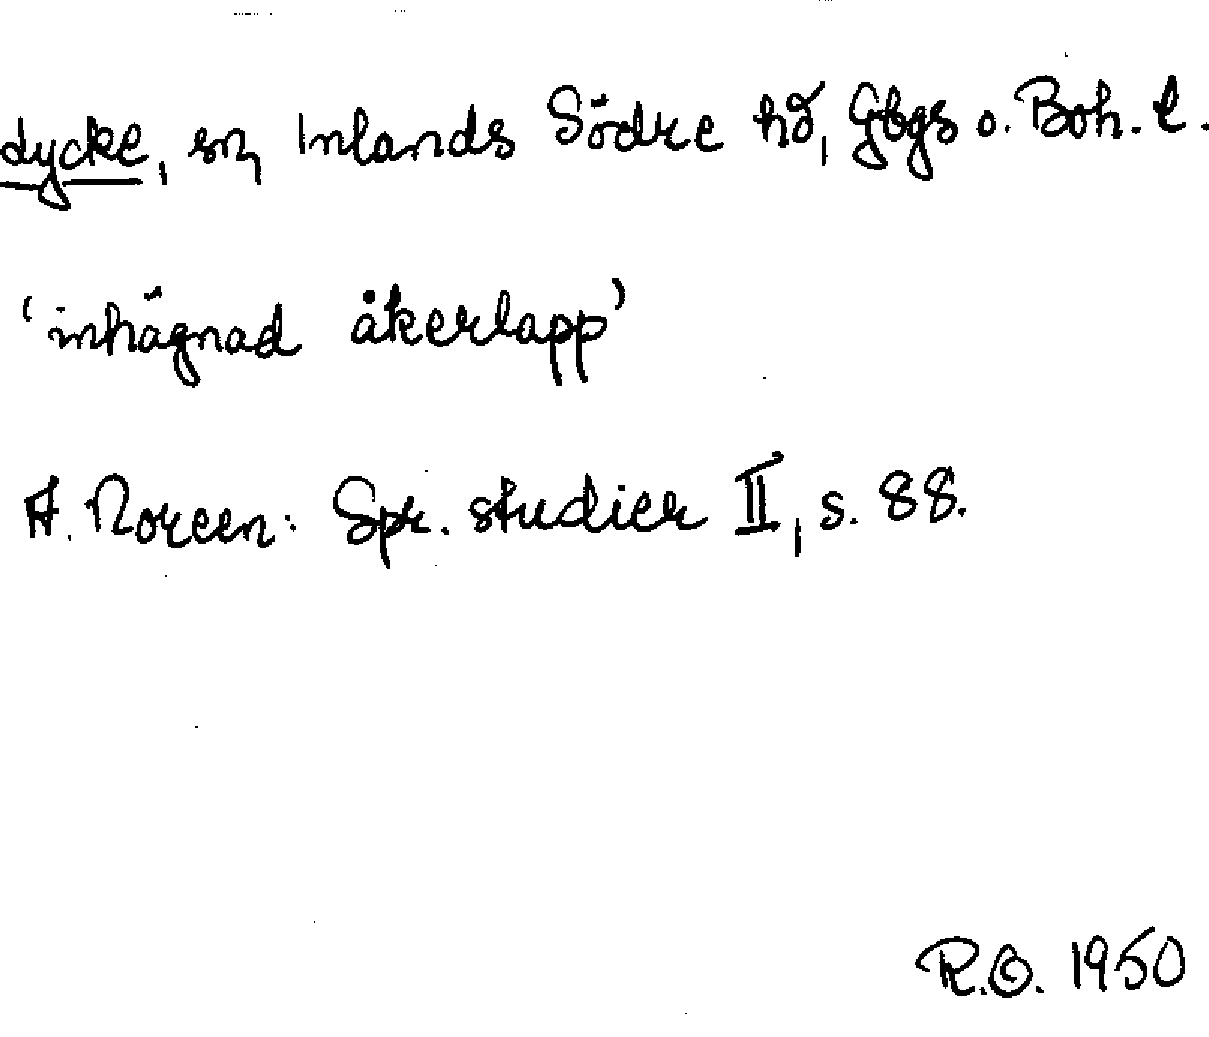 lycke, sn, Inlands Södre hd, Gbgs o. Boh. l.
'inhägnad åkerlapp'
A. Noreen: Spr. studier II, s. 88.
R.O. 1950